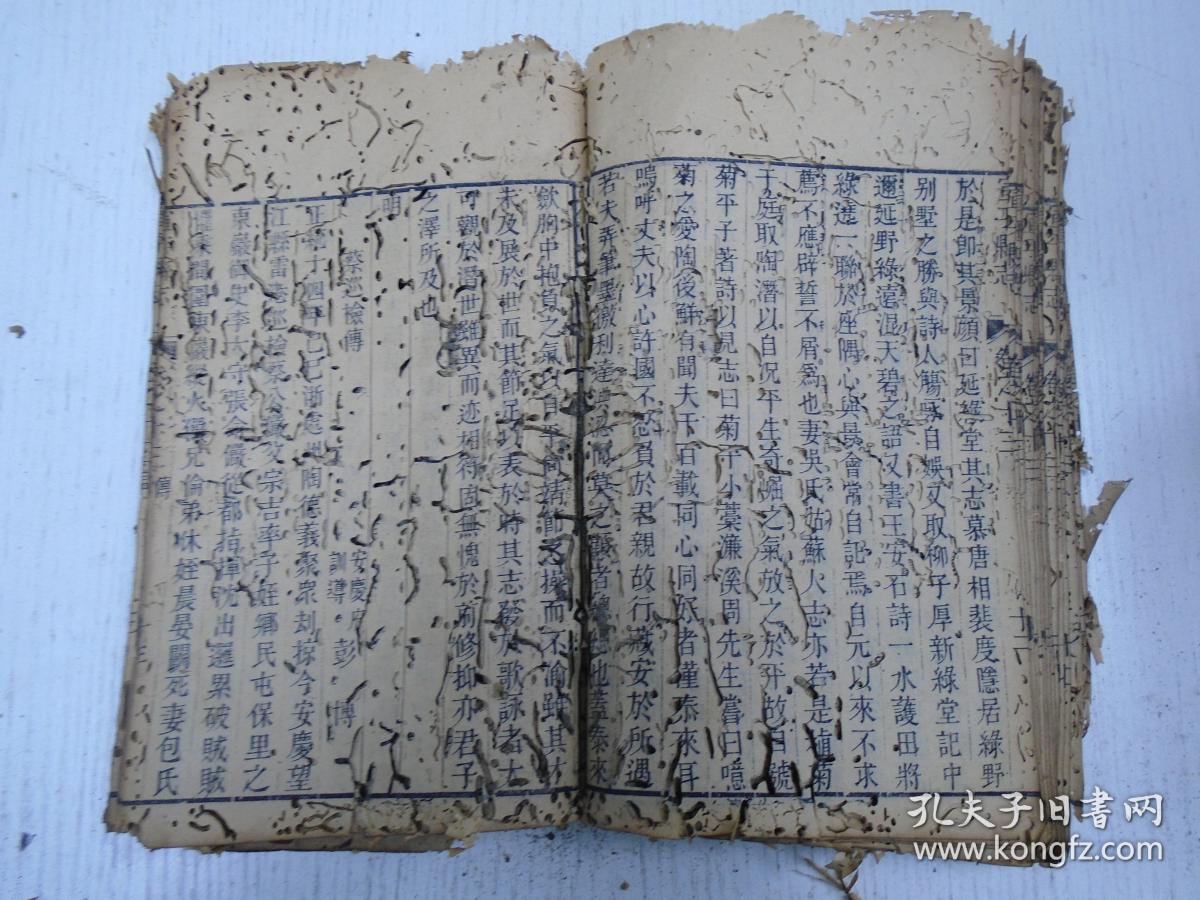 於是即其景顔曰延綠堂其志慕唐相裴度隱居綠野
別墅之勝與詩人觴詠自娛又取柳子厚新綠堂記中
邇延野綠遠混天碧之語又書王安石詩一水護田將
綠遶一聯於座隅心與景會常自記焉自元以來不求
薦不應辟誓不屑爲也妻吳氏姑蘇人志亦若是植菊
于庭取陶潛以自況平生奇崛之氣放之於平故自號
菊平子著詩以見志曰菊平小藁濂溪周先生嘗曰噫
菊之愛陶後鮮有聞夫千百載同心同好者僅泰來耳
嗚呼丈夫以心許國不忍負於君親故行藏安於所遇
若夫弄筆墨徼利達 之 者 也蓋泰來
歛胸中抱負之氣 自 高 情節 操而不渝雖其材
未及展於世而其節足以表於時其志發於歌詠者尤
可觀於潛世雖異而迹相符固無愧於前修抑亦君子
之澤所及也
明
蔡巡檢傳
安慶府 訓導 彭 博
正統十四年己巳浙處州陶德義聚衆刦掠今安慶望
江縣雷港巡檢蔡公 宗吉率子姪鄉民屯保里之
東巖 史李太守張 從都指揮沈出邏累破賊賊
間圍東巖縱火 兄倫弟休姪晨晏鬭死妻包氏
卷之十三
傳
孔夫子旧書网
www.kongfz.com